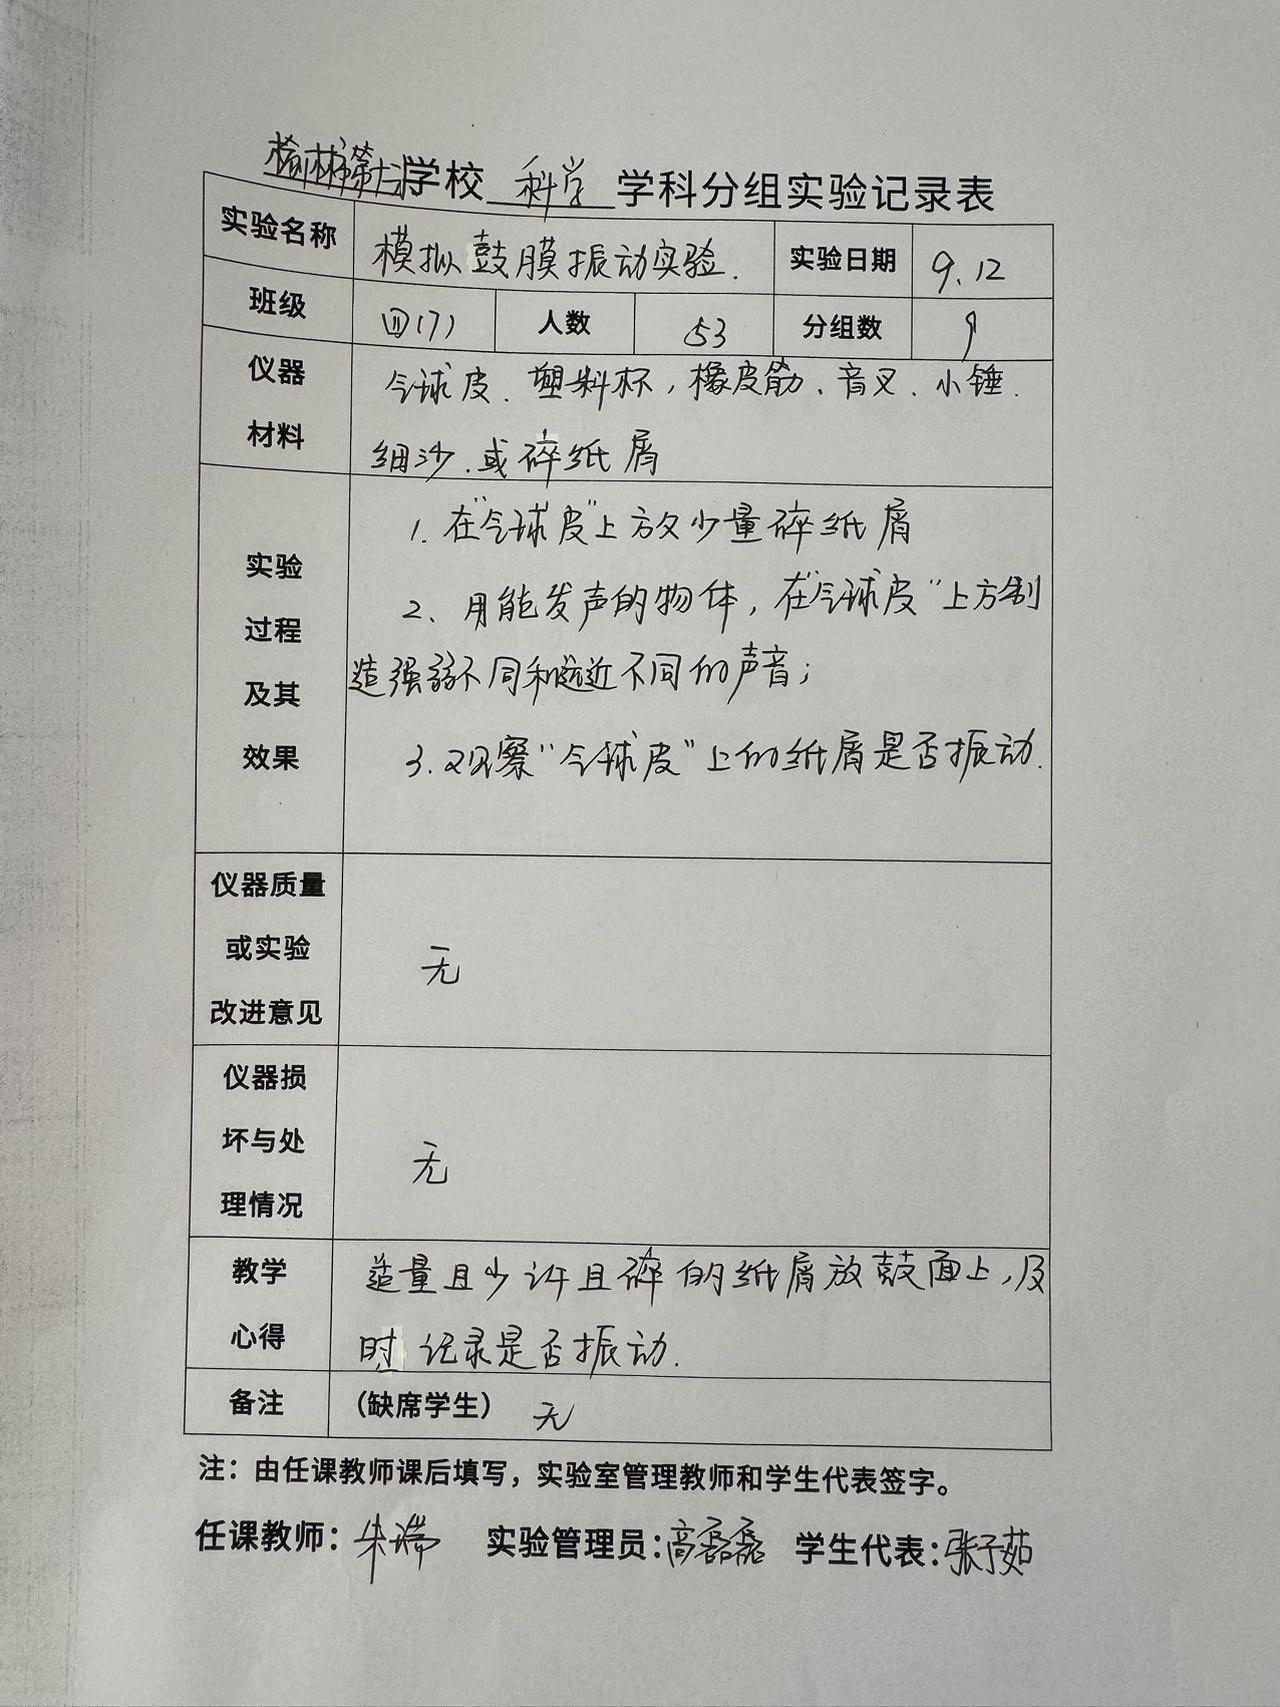 榆林市第十二学校 科学 学科分组实验记录表
实验名称 模拟鼓膜振动实验. 实验日期 9.12
班级 四(7) 人数 53 分组数 9
仪器材料 气球皮、塑料杯,橡皮筋、音叉、小锤.
细沙、或碎纸屑
实验过程及其效果
1. 在“气球皮”上放少量碎纸屑
2、用能发声的物体,在“气球皮”上方制
造强弱不同和远近不同的声音;
3.观察“气球皮”上的纸屑是否振动.
仪器质量或实验改进意见 无
仪器损坏与处理情况 无
教学心得 适量且少许且碎的纸屑放鼓面上,及
时记录是否振动.
备注 (缺席学生) 无
注：由任课教师课后填写，实验室管理教师和学生代表签字。
任课教师：朱瑞 实验管理员：高磊磊 学生代表：张子茹